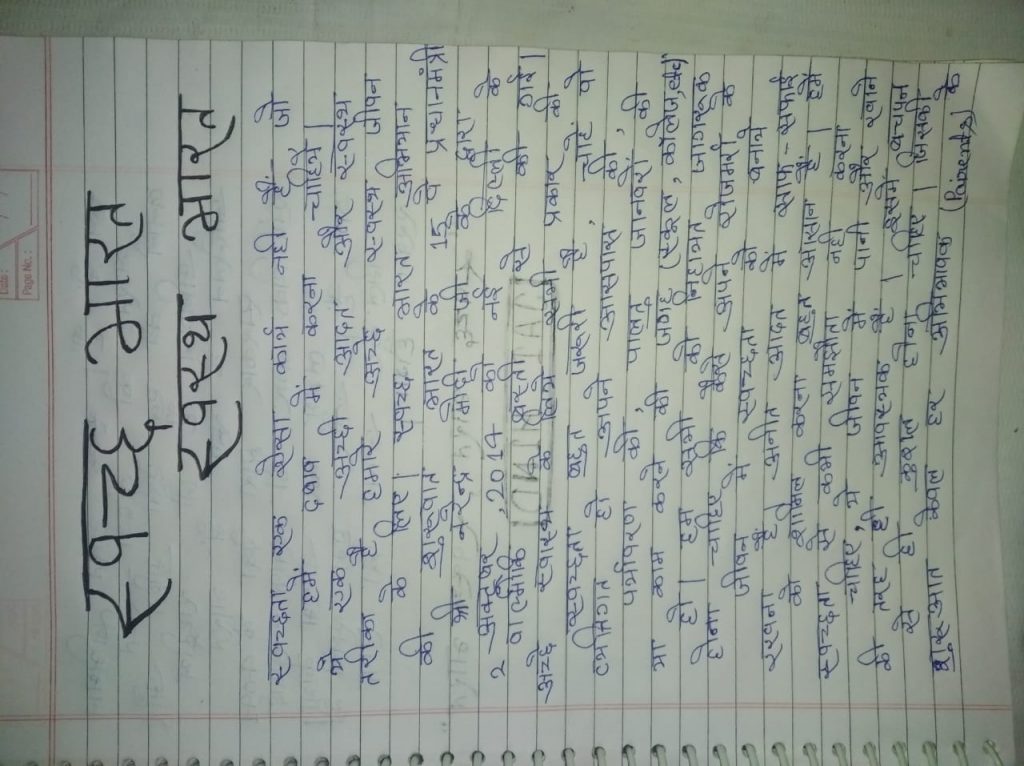 Date :
Page No. :
स्वच्छ भारत
स्वस्थ भारत
स्वच्छता एक ऐसा काम नहीं है जो
हमें दबाव में करना चाहिए।
ये एक अच्छी आदत और स्वस्थ
तरीका है हमारे अच्छे स्वस्थ जीवन
के लिए। स्वच्छ भारत अभियान
की शुरुआत भारत के 15 वे प्रधानमंत्री
श्री नरेन्द्र मोदी जी के द्वारा
2 अक्टूबर, 2014 को नई दिल्ली के
वाल्मीकि बस्ती से की गई।
अच्छे स्वास्थ्य के लिये सभी प्रकार की
स्वच्छता बहुत जरूरी है चाहे वो
व्यक्तिगत हो, अपने आसपास की,
पर्यावरण की, पालतु जानवरों की
या काम करने की जगह (स्कूल, कॉलेज, आदि)
हो। हम सभी को निहायत जागरूक
होना चाहिए कि कैसे अपने रोजमर्रा के
जीवन में स्वच्छता को बनाये
रखना है। अपनी आदत में साफ-सफाई
को शामिल करना बहुत आसान है। हमें
स्वच्छता से कभी समझौता नहीं करना
चाहिए, ये जीवन में पानी और खाने
की तरह ही आवश्यक है। इसमें बचपन
से ही कुशल होना चाहिए जिसकी
शुरुआत केवल हर अभिभावक (Parents) के